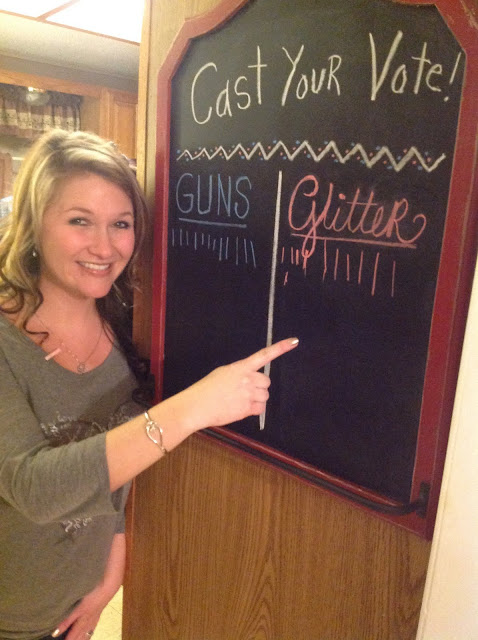 Cast Your Vote!
GUNS Glitter